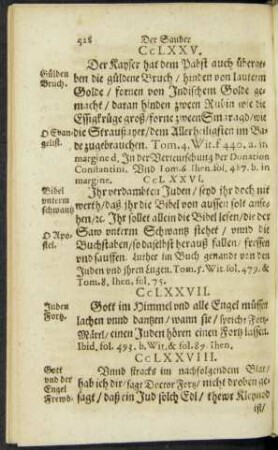 518 Der Sauber
CCLXXV.
Der Kayser hat dem Pabst auch überge-
Gülden Bruch.
ben die güldene Bruch / hinden von lauterm
Golde / fornen von Indischem Golde ge-
macht / daran hinden zween Rubin wie die
Essigkrüge groß / forne zween Smaragd / wie
O Evan-gelist.
die Straußayer / dem Allerheiligsten im Ba-
de zugebrauchen. Tom. 4. Wit. f 440. a. in
margine d. In der Verteutschung der Donation
Constantini. Vnd Tom. 6 Ihen. fol. 487. b. in
margine.
CCLXXVI.
Bibel vnterm schwantz
Ihr verdampten Juden / seyd ihr doch nit
werth / daß ihr die Bibel von aussen solt anse-
hen / &c. Ihr sollet allein die Bibel lesen / die der
O Apo-stel.
Saw vnterm Schwantz stehet / vnnd die
Buchstaben / so daselbst heraus fallen / fressen
vnd sauffen. Luther im Buch genandt von den
Juden vnd ihren Lügen. Tom. 7. Wit. fol. 479. &
Tom. 8. Ihen. fol. 75.
CCLXXVII.
Juden Fortz.
Gott im Himmel vnd alle Engel müssen
lachen vnnd dantzen / wann sie / spricht Fortz-
Märel / einen Juden hören einen Fortz lassen.
Ibid. fol. 493. b. Wit. & fol. 89. Ihen.
CCLXXVIII.
Gott vnd der Engel Frewd-
Vnnd stracks im nachfolgendem Blat /
hab ich dir / sagt Doctor Fertz / nicht droben ge-
sagt / daß ein Jud solch Edl / thewr Kleynod
ist /